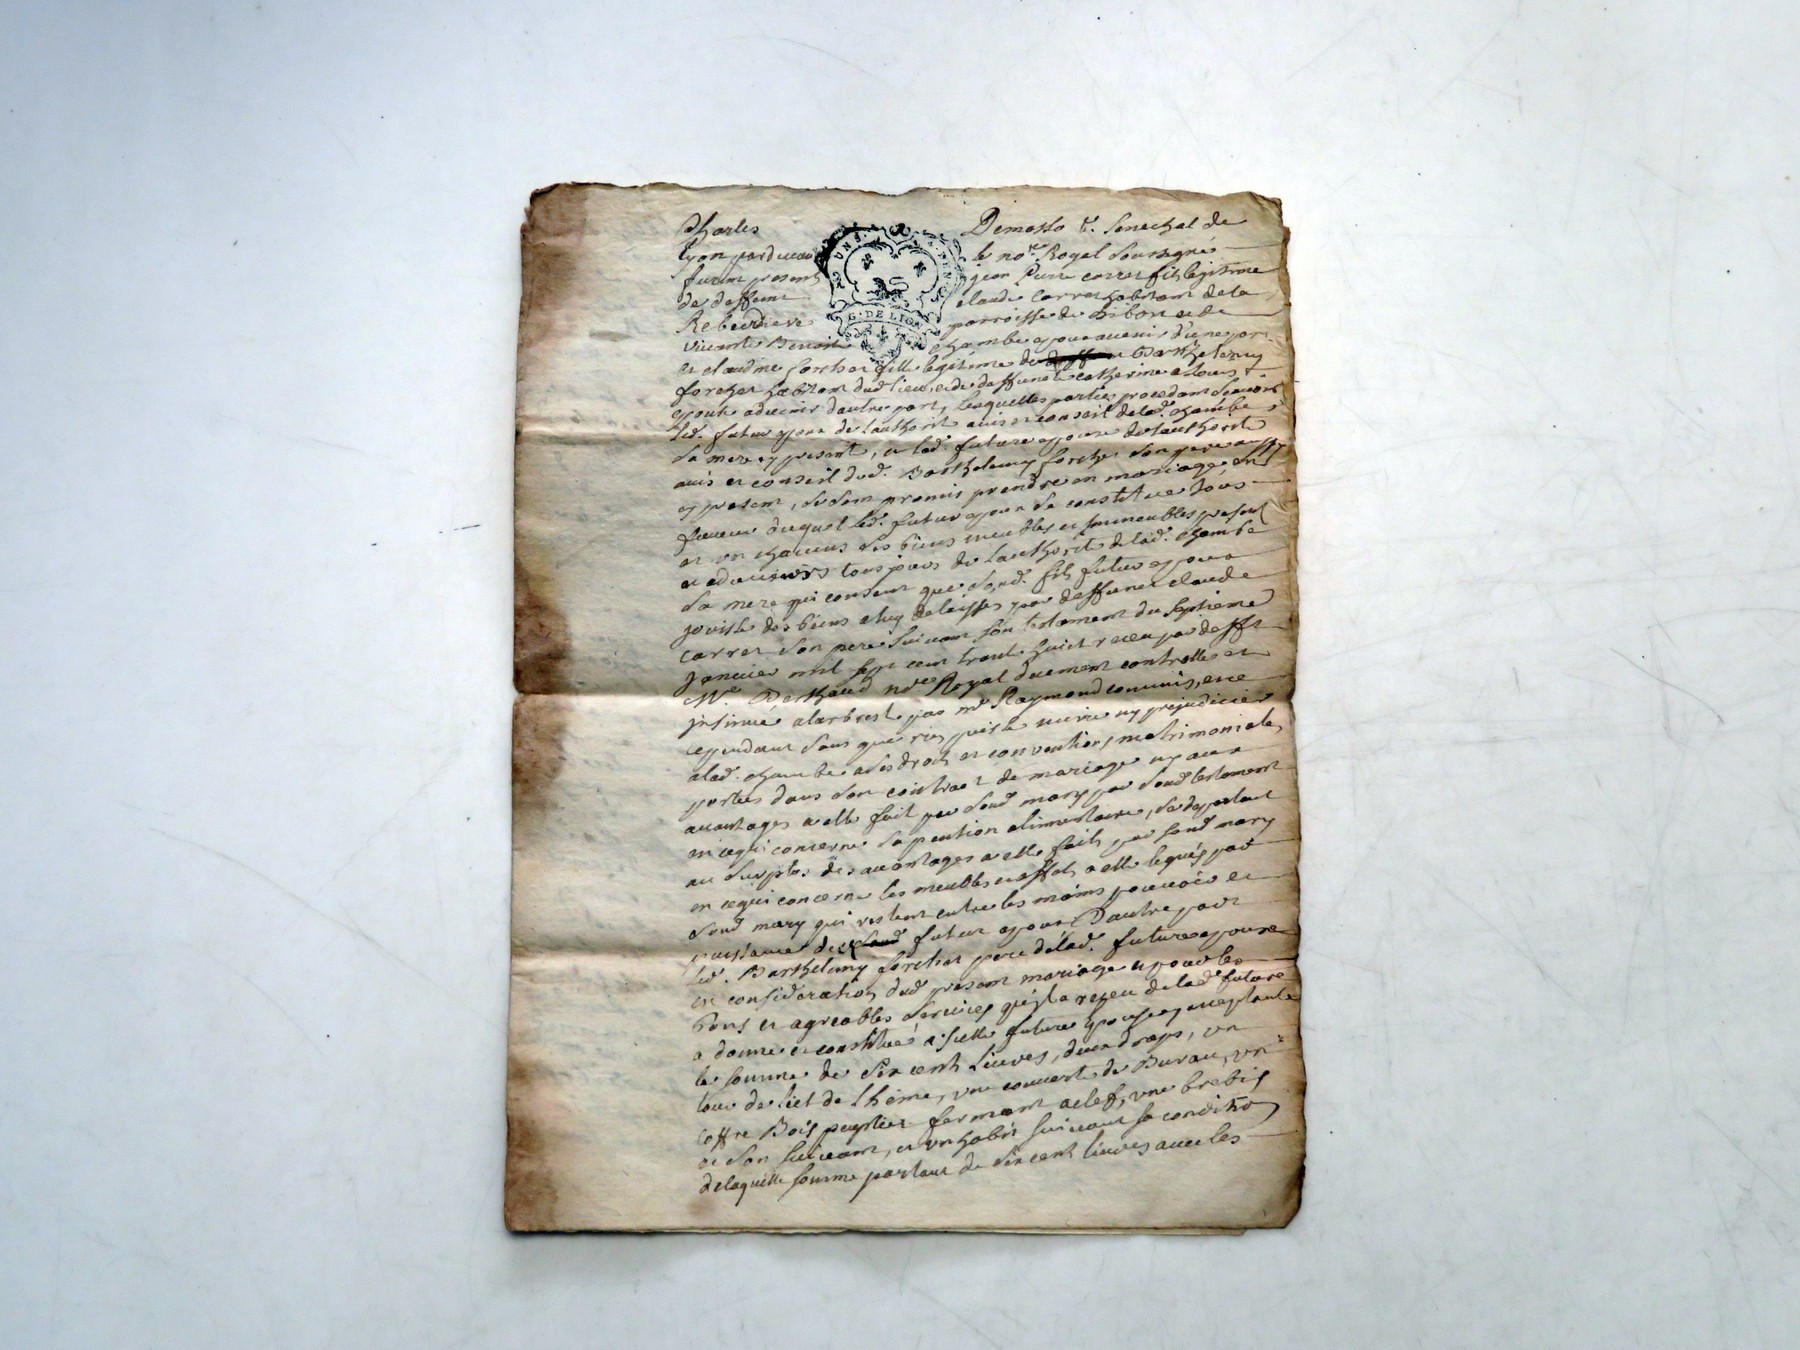 Charles Demasso Sr. Senechal de
Lyon par devant le nore. Royal Soussigné
furent presents jean Pierre carret fils legitime
de deffunt claude Carret habitant de la
paroisse de Ribon et de
vivante Benoite chambe epoux avenir d'une part
et claudine forchet fille legitime de Barthelemy
forchet habitant dud. lieu, et de deffunte catherine
epouse advenir d'autre part, lesquelles parties procedant Scavoir
led. futur epoux de l'authorité avis et conseil de lad. chambe
Sa mere cy presente, et lad. future epouse de l'authorité
avis et conseil dud. Barthelemy forchet Son pere aussy
cy present, se sont promis prendre en mariage, en
faveur duquel led. futur epoux se constitue tous
et un chacuns ses biens meubles et immeubles presents
et advenirs tousjours de l'authorité de lad. chambe
Sa mere qui consent que sond. fils futur epoux
jouisse des biens a luy delaissés par deffunct claude
carret son pere suivant son testament du septieme
janvier mil sept cent trente huict receu par defft
Me. Berthaud nore Royal duement controllé et
insinué a larbresle par mr Raymond commis, et ce
cependant sans que rien puisse nuire ny prejudicier
a lad. chambe a ses droits et conventions matrimoniales
portées dans son contract de mariage ny aux
avantages a elle fait par sond. mary par sond. testament
en ce qui concerne sa pention alimentaire, se departant
au surplus des avantages a elle faits par sond. mary
en ce qui concerne les meubles et effets a elle legués par
sond. mary qui restent entre les mains pouvoir et
puissance dud. futur epoux D'autre part
led. Barthelemy forchet pere de lad. future epouse
en consideration dud. present mariage et pour les
bons et agreables services qu'il a receu de lad. future
a donné et constitué a icelle future epouse cy acceptante
la somme de Six cents livres, deux draps, un
tour de lict de , une couverte de Bureau, un
coffre Bois peuplier fermant a clef, une brebis
et son suivant, et un habit suivant sa condition
de laquelle somme partant de Six cents livres avec les
G. DE LION